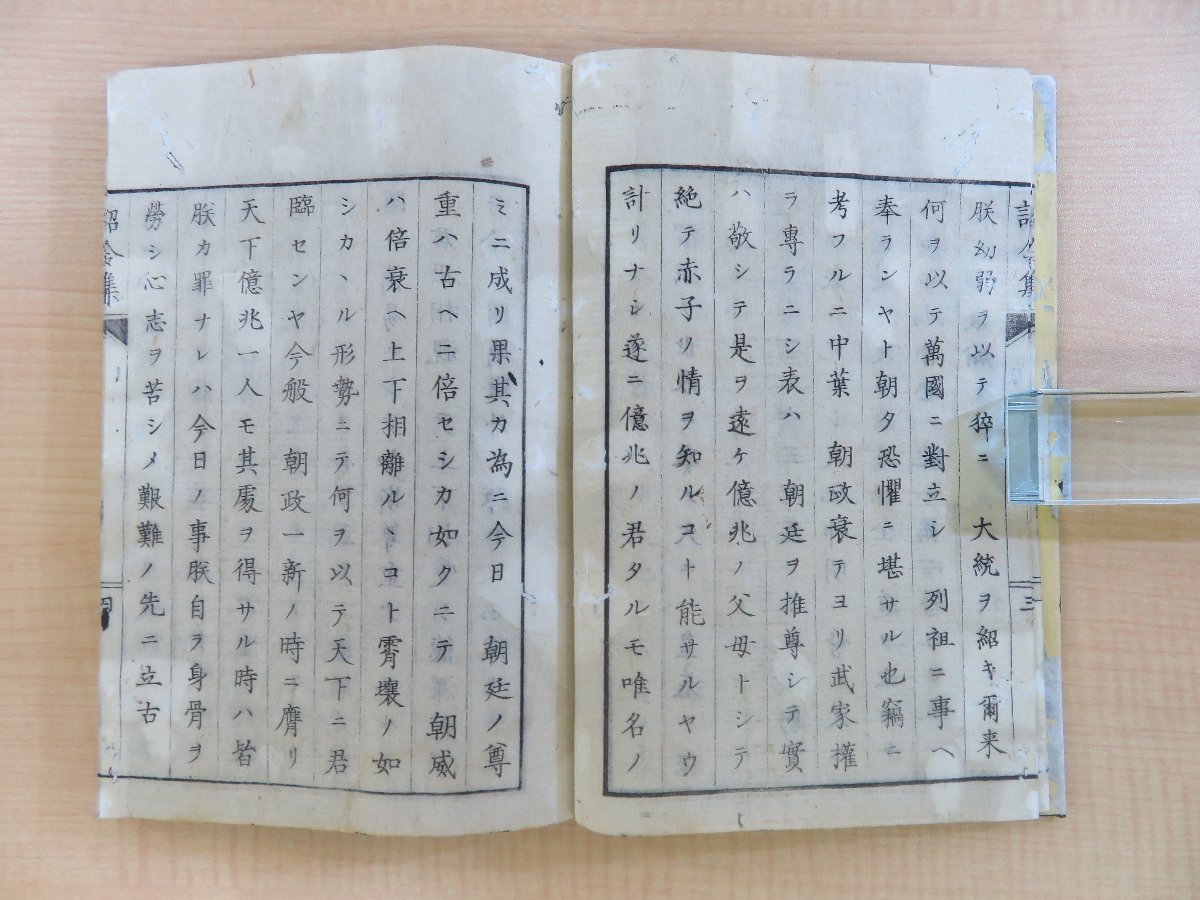 詔令集
三
朕幼弱ヲ以テ猝ニ 大統ヲ紹キ爾来
何ヲ以テ萬國ニ對立シ 列祖ニ事ヘ
奉ランヤト朝夕恐懼ニ堪サル也竊ニ
考フルニ中葉 朝政衰テヨリ武家權
ラ專ラニシ表ハ 朝廷ヲ推尊シテ實
ハ敬シテ是ヲ遠ケ億兆ノ父毋トシテ
絶テ赤子ソ情ヲ知ルコト能サルヤウ
計リナシ遂ニ億兆ノ君タルモ唯名ノ
ミニ成リ果其カ為ニ今日 朝廷ノ尊
重ハ古ヘニ倍セシカ如クニテ 朝威
ハ倍衰ヘ上下相離ルヽコト霄壤ノ如
シカヽル形勢ニテ何ヲ以テ天下ニ君
臨センヤ今般 朝政一新ノ時ニ膺リ
天下億兆一人モ其處ヲ得サル時ハ皆
朕カ罪ナレハ今日ノ事朕自ラ身骨ヲ
勞シ心志ヲ苦シメ艱難ノ先ニ立古
詔令集
四